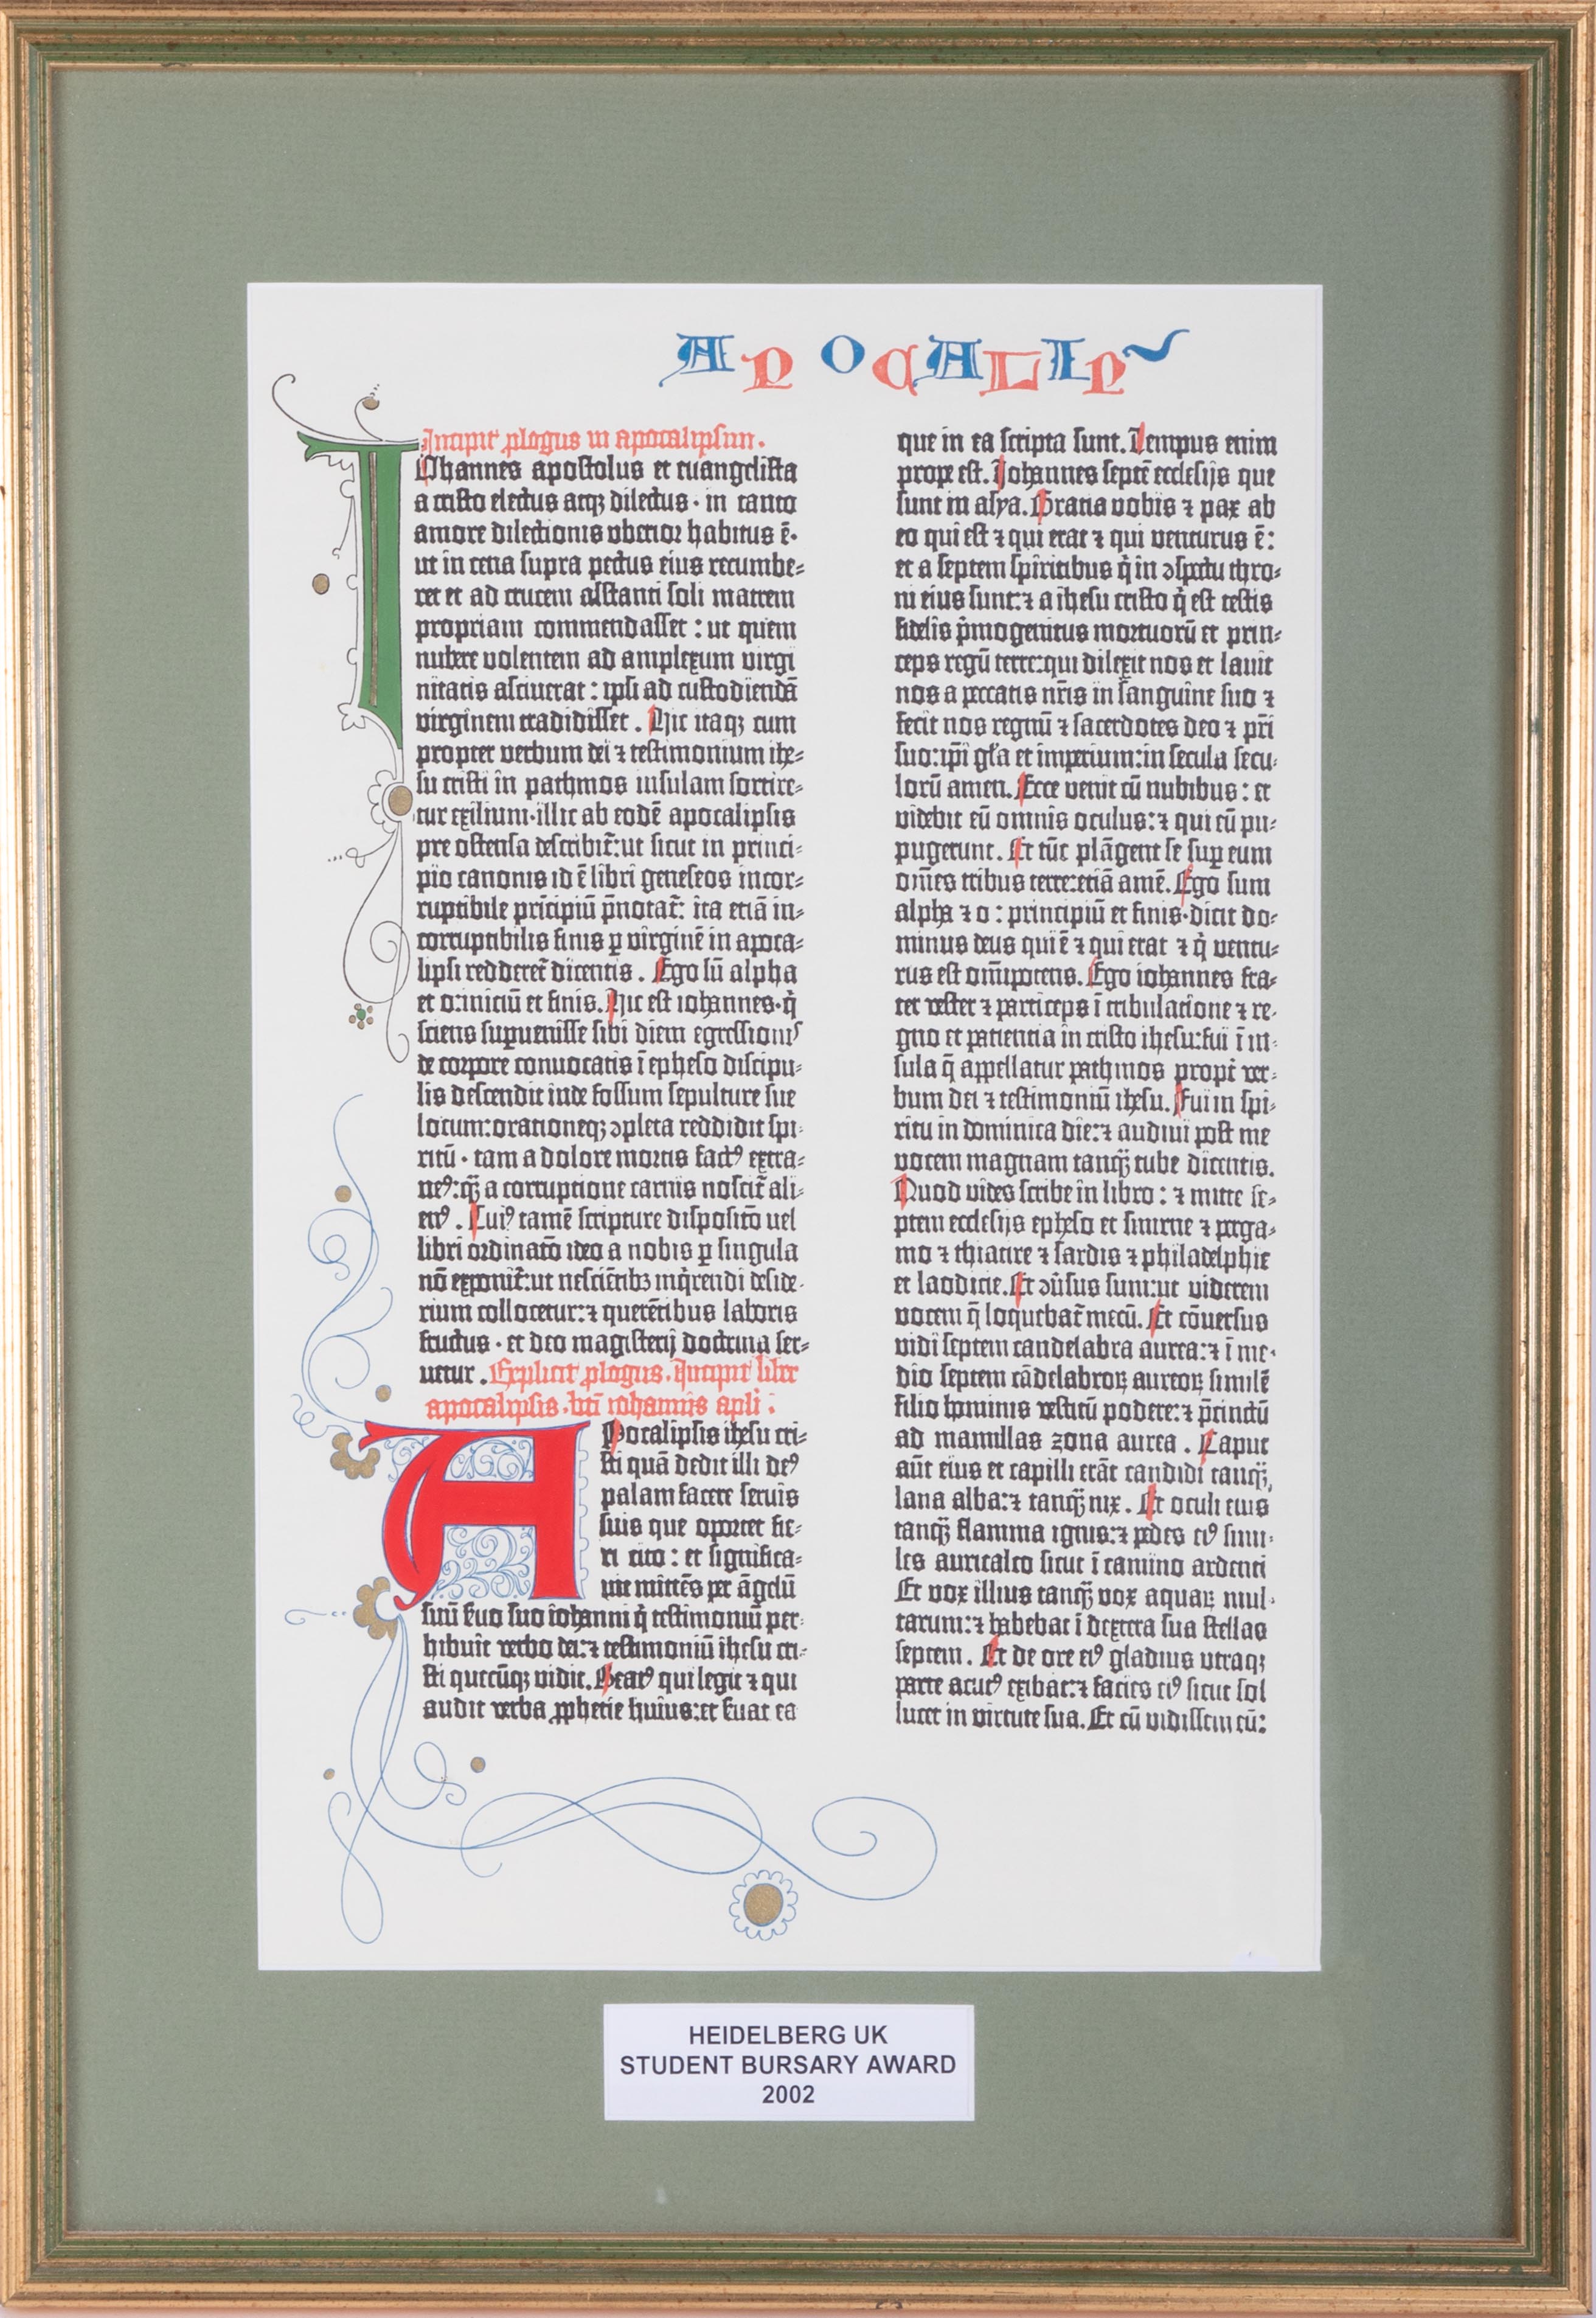 APOCALIP
Incipit prologus in apocalipsim.
Iohannes apostolus et euangelista
a cristo electus atqꝫ dilectus · in tanto
amore dilectionis vberior habitus ē·
ut in cena supra pectus eius recumbe⸗
ret et ad crucem astanti soli matrem
propriam commendasset : ut quem
nubere volentem ad amplexum virgi
nitatis asciuerat : ipsi ad custodiendā
virginem tradidisset . Hic itaqꝫ cum
propter verbum dei ⁊ testimonium ihe⸗
su cristi in pathmos insulam sortire⸗
tur exilium·illic ab eodē apocalipsis
pre ostensa describit̄:ut sicut in princi⸗
pio canonis id ē libri geneseos incor⸗
ruptibile prīcipiū p̄notat̄: ita etiā in⸗
corruptibilis finis ꝑ virginē in apoca⸗
lipsi redderet̄ dicentis . Ego sū alpha
et o:iniciū et finis. Hic est iohannes·q̇
sciens suꝑuenisse sibi diem egressionis
de corpore conuocatis ī epheso discipu⸗
lis descendit inde fossum sepulture sue
locum:orationeqꝫ ꝯpleta reddidit spi⸗
ritū · tam a dolore mortis factꝰ extra⸗
neꝰ:qͣꝫ a corruptione carnis noscit̄ ali⸗
enꝰ . Cuiꝰ tamē scripture dispositō uel
libri ordinatō ideo a nobis ꝑ singula
nō exponit̄:ut nesciētibꝫ inq̇rendi deside⸗
rium collocetur:⁊ querētibus laboris
fructus · et deo magisterij doctrina ser⸗
uetur . Explicit ꝓlogus. Incipit liber
apocalipsis . bt̄i iohannis apl̄i :
Apocalipsis ihesu cri⸗
sti quā dedit illi deꝰ
palam facere seruis
suis que oportet fie⸗
ri cito : et significa⸗
uit mittēs per āgelū
suū seruo suo iohanni q̇ testimoniū per⸗
hibuit verbo dei:⁊ testimoniū ihesu cri⸗
sti quecūqꝫ vidit. Beatꝰ qui legit ⁊ qui
audit verba ꝓphetie huius:et seruat ea
que in ea scripta sunt. Tempus enim
prope est. Iohannes septē ecclesijs que
sunt in asya. Gracia vobis ⁊ pax ab
eo qui est ⁊ qui erat ⁊ qui venturus ē:
et a septem spiritibus q̇ in ꝯspectu thro⸗
ni eius sunt:⁊ a ihesu cristo q̇ est testis
fidelis p̄mogenitus mortuorū et prin⸗
ceps regū terre:qui dilexit nos et lauit
nos a peccatis nr̄is in sanguine suo ⁊
fecit nos regnū ⁊ sacerdotes deo ⁊ pr̄i
suo:ip̄i gl̄a et imperium:in secula secu⸗
lorū amen. Ecce venit cū nubibus : et
videbit eū omnis oculus:⁊ qui eū pu⸗
pugerunt. Et tūc plāgent se suꝑ eum
om̄es tribus terre:etiā amē. Ego sum
alpha ⁊ o : principiū et finis·dicit do⸗
minus deus qui ē ⁊ qui erat ⁊ q̇ ventu⸗
rus est om̄ipotens. Ego iohannes fra⸗
ter vester ⁊ particeps ī tribulacione ⁊ re⸗
gno et patientia in cristo ihesu:fui ī in⸗
sula q̄ appellatur pathmos propt̄ ver⸗
bum dei ⁊ testimoniū ihesu. Fui in spi⸗
ritu in dominica die:⁊ audiui post me
vocem magnam tanqͣꝫ tube dicentis.
Quod vides scribe in libro : ⁊ mitte se⸗
ptem ecclesijs epheso et smirne ⁊ perga⸗
mo ⁊ thiatire ⁊ sardis ⁊ philadelphie
et laodicie. Et ꝯūsus sum:ut viderem
vocem q̄ loquebat̄ mecū. Et cōuersus
vidi septem candelabra aurea:⁊ ī me⸗
dio septem cādelabroꝝ aureoꝝ similē
filio hominis vestitū podere:⁊ p̄cinctū
ad mamillas zona aurea . Caput
aūt eius et capilli erāt candidi tanqͣꝫ
lana alba:⁊ tanqͣꝫ nix . Et oculi eius
tanqͣꝫ flamma ignis:⁊ pedes eiꝰ simi⸗
les auricalco sicut ī camino ardenti
Et vox illius tanqͣꝫ vox aquaꝝ mul⸗
tarum:⁊ habebat ī dextera sua stellas
septem . Et de ore eiꝰ gladius utraqꝫ
parte acutꝰ exibat:⁊ facies eiꝰ sicut sol
lucet in virtute sua. Et cū vidissem eū:
HEIDELBERG UK
STUDENT BURSARY AWARD
2002